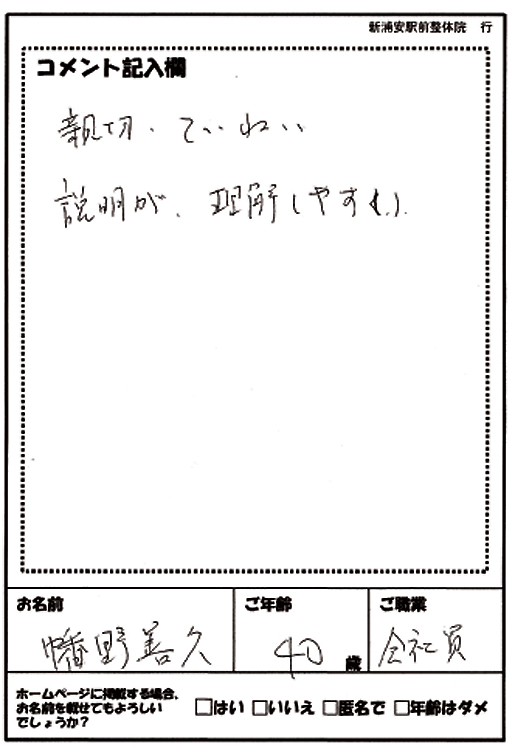 新浦安駅前整体院 行
コメント記入欄
親切、ていねい
説明が、理解しやすい。
お名前
ご年齢
ご職業
幡野善久
40 歳
会社員
ホームページに掲載する場合、
お名前を載せてもよろしい
でしょうか?
□はい □いいえ □匿名で □年齢はダメ